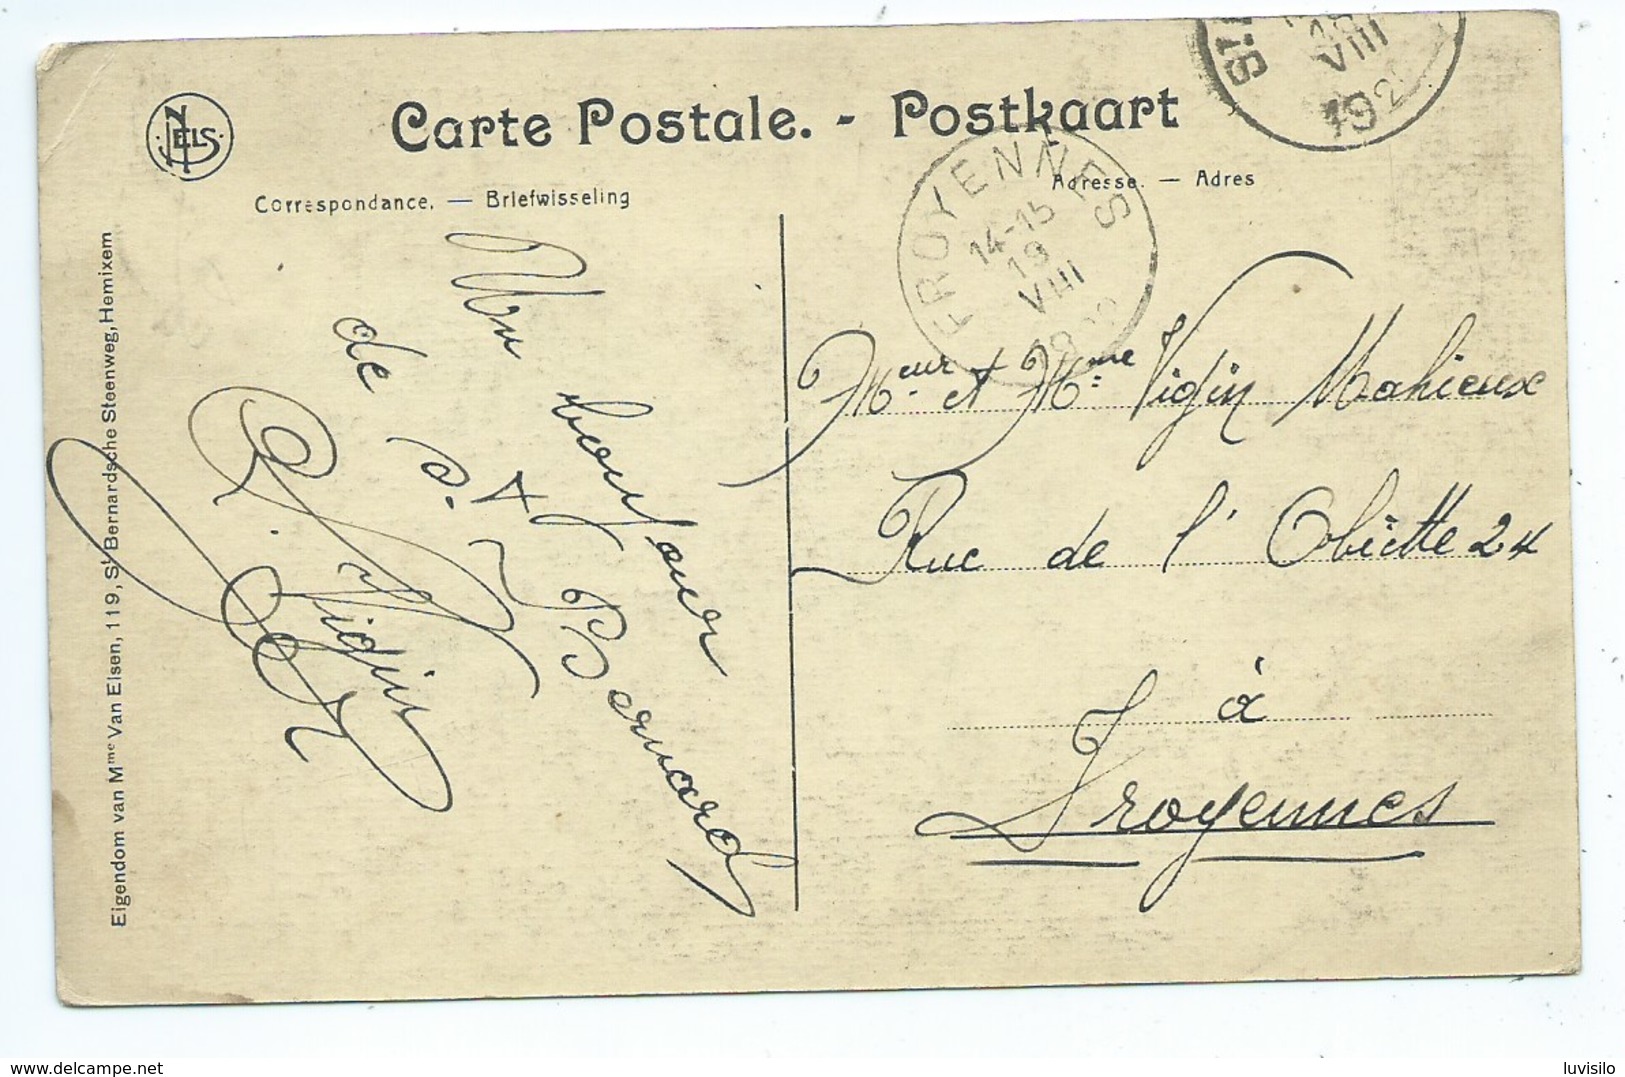 Carte Postale. - Postkaart
NELS
Correspondance. — Briefwisseling
Adresse. — Adres
FROYENNES
14-15
19
VIII
19
18
VIII
192
Un bonjour
de
Bernard
Vigin
Meur et Mme Vigin Mahieux
Rue de l' Obiette 24
à
Froyennes
Eigendom van Mme Van Elsen, 119, St Bernardsche Steenweg, Hemixem
delcampe.net
luvisilo